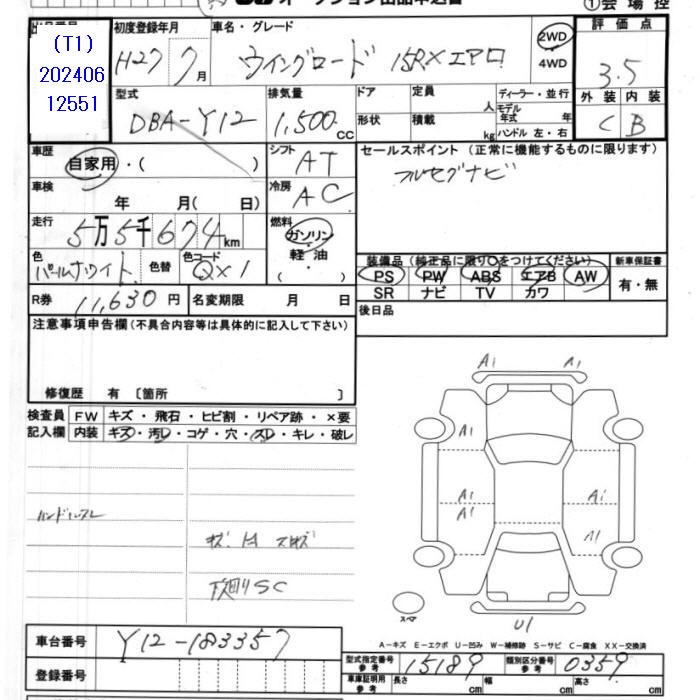 オークション出品申込書
①会場控
(T1)
202406
12551
初度登録年月
H27 7月
車名・グレード
ウイングロード 15RXエアロ
2WD
4WD
評価点
3.5
外装 内装
C B
型式
DBA-Y12
排気量
1,500cc
ドア
形状
定員 人
積載 kg
ディーラー・並行
モデル年式 年
ハンドル 左・右
車歴
自家用・( )
シフト
AT
車検
年 月( 日)
冷房
AC
走行
5万5千674km
燃料
ガソリン
軽油
( )
色
パールホワイト
色替
色コード
QX1
R券
11,630円
名変期限 月 日
セールスポイント(正常に機能するものに限ります)
フルセグナビ
装備品(純正品に限り○をつけてください)
新車保証書
PS PW ABS エアB AW
SR ナビ TV カワ
有・無
後日品
注意事項申告欄(不具合内容等は具体的に記入して下さい)
修復歴 有 〔箇所 〕
検査員
記入欄
FW キズ・飛石・ヒビ割・リペア跡・×要
内装 キズ・汚レ・コゲ・穴・スレ・キレ・破レ
ハンドルスレ
下回りSC
A1 A1
A1
A1 A1
A1 A1
U1
スペア
A-キズ E-エクボ U-凹み W-補修跡 S-サビ C-腐食 XX-交換済
車台番号
Y12-183357
登録番号
型式指定番号
参考
15189
類別区分番号
参考
0359
車庫証明用
参考
長さ cm 幅 cm 高さ cm